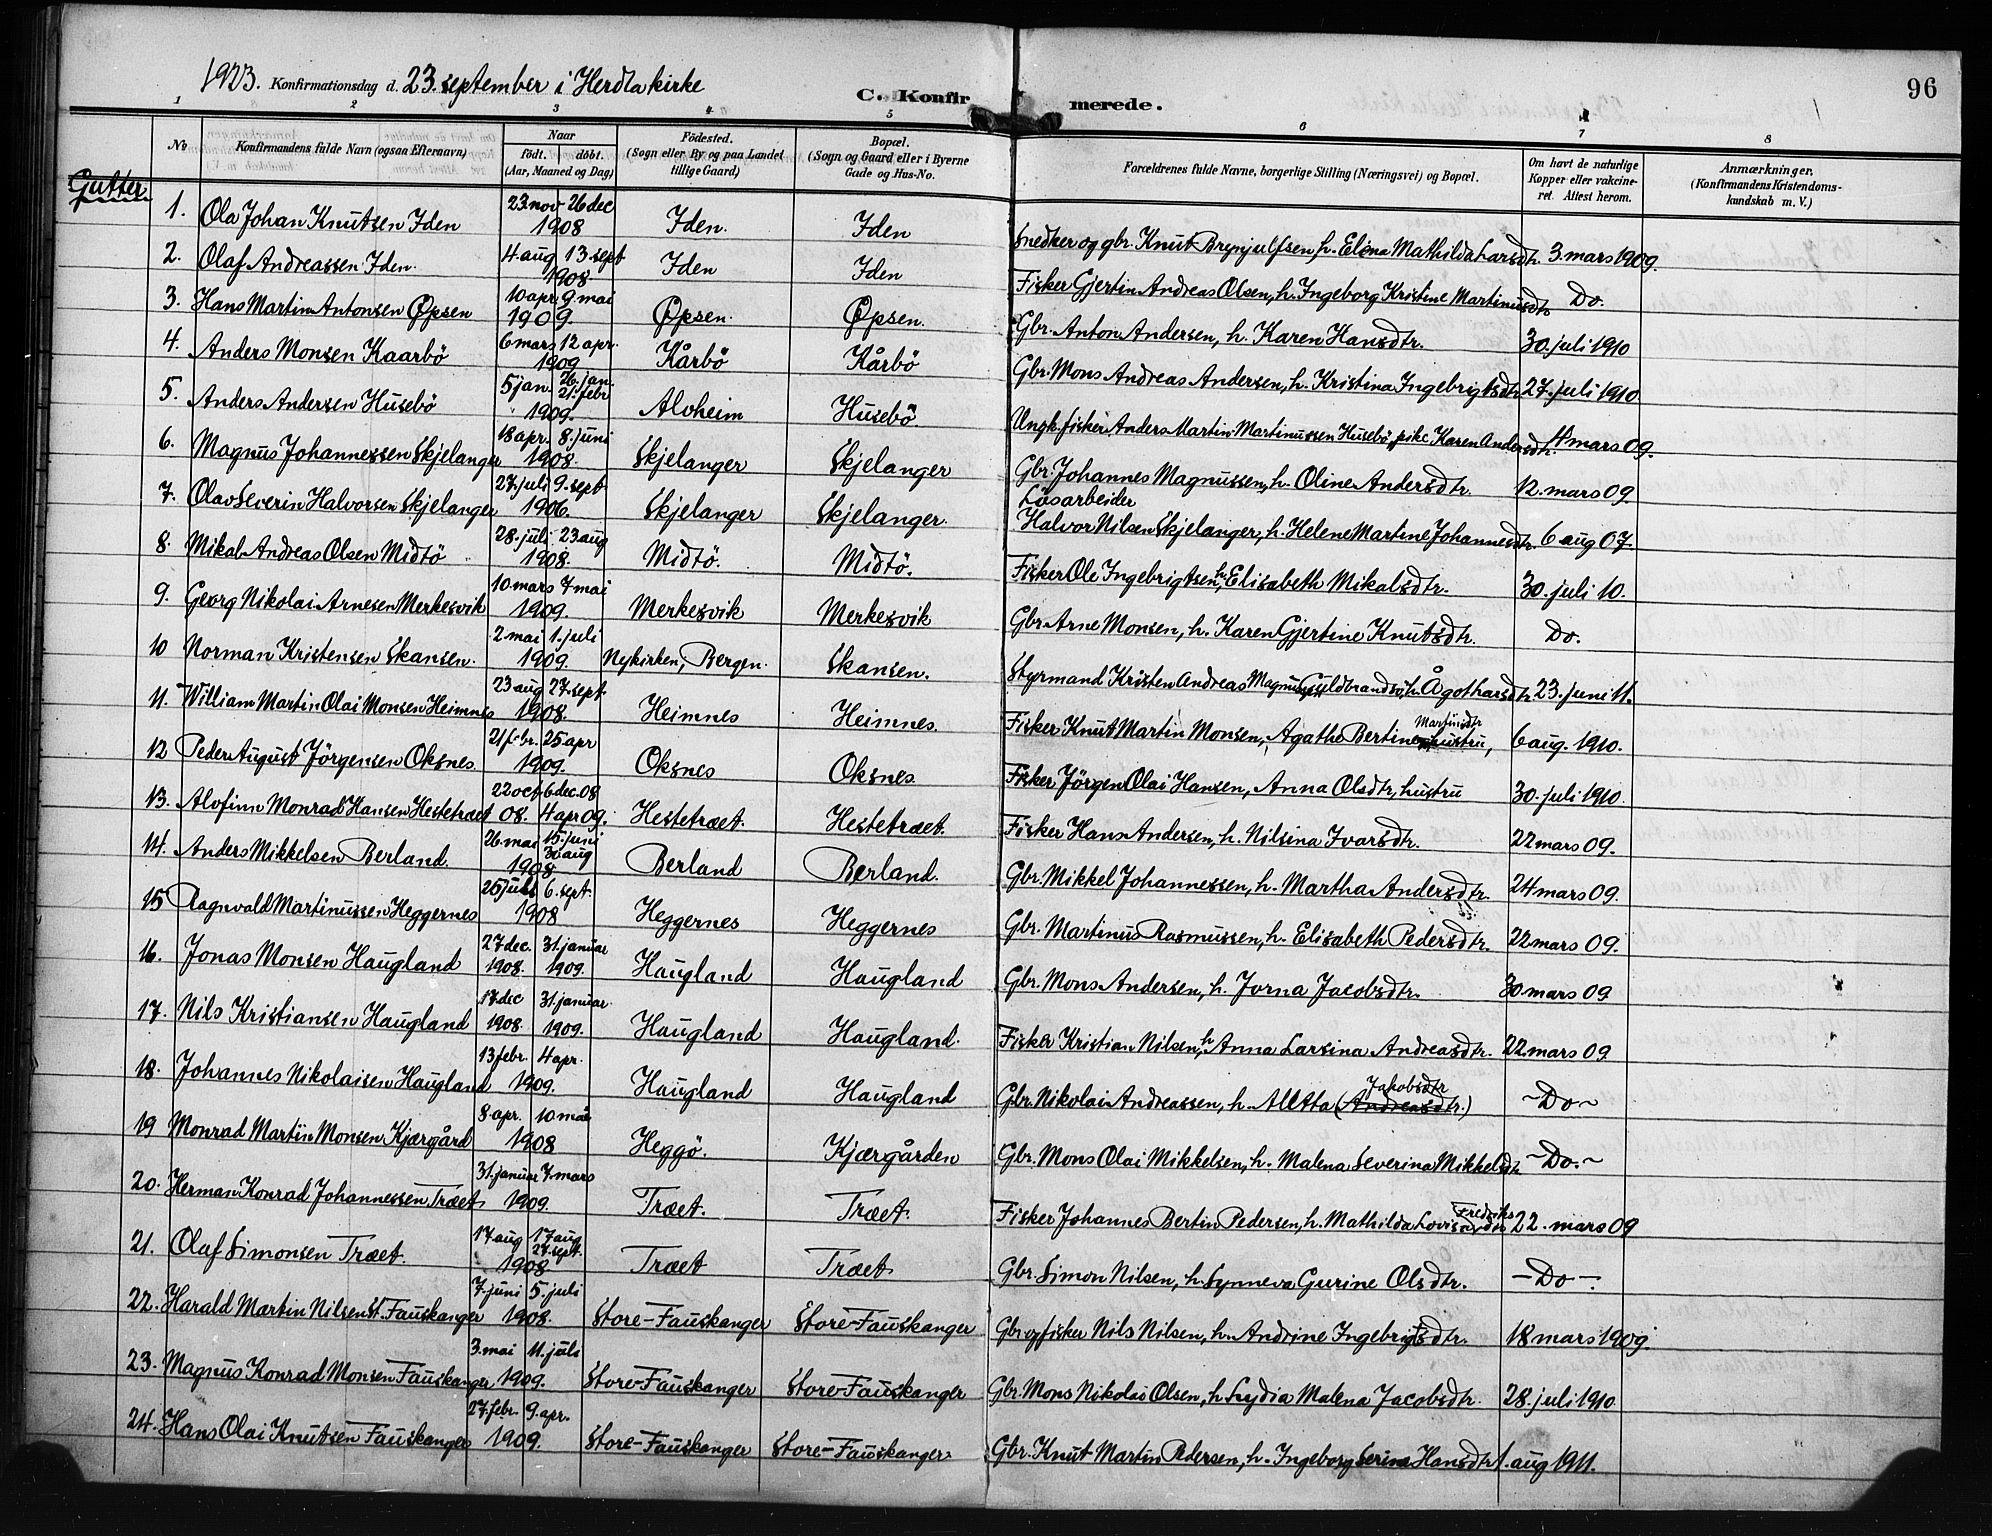 1923. Konfirmationsdag d. 23. september i Herdla kirke
C. Konfirmerede.
96
1 2 3 4 5 6 7 8
No
Konfirmandens fulde Navn (ogsaa Efternavn)
Naar
født. døbt.
(Aar, Maaned og Dag)
Fødested.
(Sogn eller By og paa Landet
tillige Gaard)
Bopæl.
(Sogn og Gaard eller i Byerne
Gade og Hus-No.
Forældrenes fulde Navne, borgerlige Stilling (Næringsvei) og Bopæl.
Om havt de naturlige
Kopper eller vakcine-
ret. Attest herom.
Anmærkninger,
(Konfirmandens Kristendoms-
kundskab m. V.)
Gutter
1. Ola Johan Knutsen Iden 23. nov 26 dec 1908 Iden. Iden Snedker og gbr. Knut Brynjulfsen, h. Elena Mathilda Larsdtr. 3. mars 1909.
2. Olaf Andreassen Iden. 4 aug 13. sept 1908 Iden Iden Fisker Gjertin Andreas Olsen, h. Ingeborg Kristine Martinusdtr Do.
3. Hans Martin Antonsen Øpsen 10 apr. 9. mai 1909. Øpsen. Øpsen. Gbr. Anton Andersen, h. Karen Hansdtr. 30. juli 1910
4. Anders Monsen Kaarbö 6 mars 12 apr. 1909 Kårbö Kårbö Gbr. Mons Andreas Andersen, h. Kristina Ingebrigtsdtr 27. juli 1910
5. Anders Andersen Husebö 5 jan. 26. jan. 21. febr 1909. Alvheim Husebö Ungk. fisker Anders Martin Martinussen Husebö, pike Karen Andersdtr. 4 mars 09.
6. Magnus Johannessen Skjelanger 18 apr. 8. juni 1908. Skjelanger Skjelanger Gbr. Johannes Magnussen, h. Oline Andersdtr. 12. mars 09
7. Olav Severin Halvorsen Skjelanger 27. juli 9. sept 1906. Skjelanger Skjelanger. Lösarbeider Halvor Nilsen Skjelanger, h. Helene Martine Johannesdtr. 6 aug 07.
8. Mikal Andreas Olsen Midtö 28. juli 23 aug 1908. Midtö. Midtö. Fisker Ole Ingebrigtsen, h. Elisabeth Mikalsdtr. 30. juli 10.
9. Georg Nikolai Arnesen Merkesvik 10 mars 7 mai 1909. Merkesvik Merkesvik Gbr. Arne Monsen, h. Karen Gjertine Knutsdtr. Do.
10 Norman Kristensen Skansen. 2 mai 1. juli 1909. Nykirken, Bergen. Skansen. Styrmand Kristen Andreas Magnus h. Ågot 23. juni 11.
11. William Martin Olai Monsen Heimnes 23 aug 27. sept. 1908. Heimnes Heimnes. Fisker Knut Martin Monsen, Agathe Bertine Martinsdtr hustru, 6 aug. 1910.
12 Peder August Jörgensen Oksnes 21 febr. 25 apr 1909. Oksnes Oksnes Fisker Jörgen Olai Hansen, Anna Olsdtr, hustru 30. juli 1910.
13. Alvfinn Monrad Hansen Hestetræet 22 oct 6 dec. 08 08. 4 apr 09. Hestetræet. Hestetræet. Fisker Hans Andersen, h. Nilsina Ivarsdtr. 22 mars 09.
14. Anders Mikkelsen Berland. 26. mai 15. juni 30 aug 1908. Berland Berland. Gbr. Mikkel Johannessen, h. Martha Andersdtr. 24 mars 09.
15 Ragnvald Martinussen Heggernes 25 juli 6. sept. 1908 Heggernes Heggernes Gbr. Martinus Rasmussen, h. Elisabeth Pedersdtr. 22 mars 09.
16. Jonas Monsen Haugland 27 dec. 1908. 31. januar 1909. Haugland Haugland Gbr. Mons Andersen, h. Jorna Jacobsdtr. 30 mars 09
17. Nils Kristiansen Haugland 17 dec 1908. 31. januar 1909. Haugland Haugland. Fisker Kristian Nilsen, h. Anna Larsina Andreasdtr. 22 mars 09
18. Johannes Nikolaisen Haugland 13 febr. 4 apr. 1909. Haugland Haugland Gbr. Nikolai Andreassen, h. Aletta (Andreasdtr.) Jakobsdtr ~Do~
19 Monrad Martin Monsen Kjærgård 8. apr. 10 mai 1908 Heggö. Kjærgården Gbr. Mons Olai Mikkelsen, h. Malena Severina Mikkelsdtr ~Do.~
20. Herman Konrad Johannessen Træet 31. januar 7. mars 1909. Træet. Træet. Fisker Johannes Bertin Pedersen, h. Mathilda Lovisa Fredriksdtr 22. mars 09
21. Olaf Simonsen Træet. 17 aug 17 aug 27. sept. 1908 Træet Træet Gbr. Simon Nilsen, h. Synneva Gurine Olsdtr. —Do—.
22. Harald Martin Nilsen St. Fauskanger 7. juni 5. juli 1908. Store-Fauskanger Store-Fauskanger Gbr og fisker Nils Nilsen, h. Andrine Ingebrigtsdtr. 18 mars 1909.
23. Magnus Konrad Monsen Fauskanger 3. mai 11. juli 1909. Store-Fauskanger Store-Fauskanger Gbr. Mons Nikolai Olsen, h Lydia Malena Jacobsdtr. 28. juli 1910
24. Hans Olai Knutsen Fauskanger 27. febr. 9. apr. 1909. Store-Fauskanger Store-Fauskanger. Gbr. Knut Martin Pedersen, h. Ingeborg Serina Hansdtr 1. aug 1911.